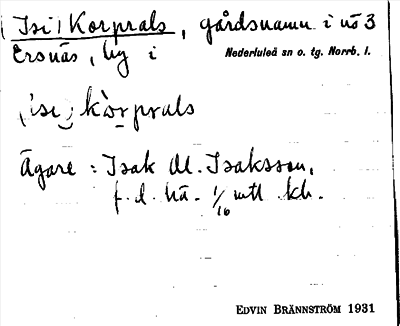 (Isi) Korprals, gårdsnamn i nö 3
Ersnäs, by i
Nederluleå sn o. tg. Norrb. l.
(ìsi) kòrprals
Ägare : Isak M. Isaksson,
f. d. hä. 1/16 mtl kh.
EDVIN BRÄNNSTRÖM 1931